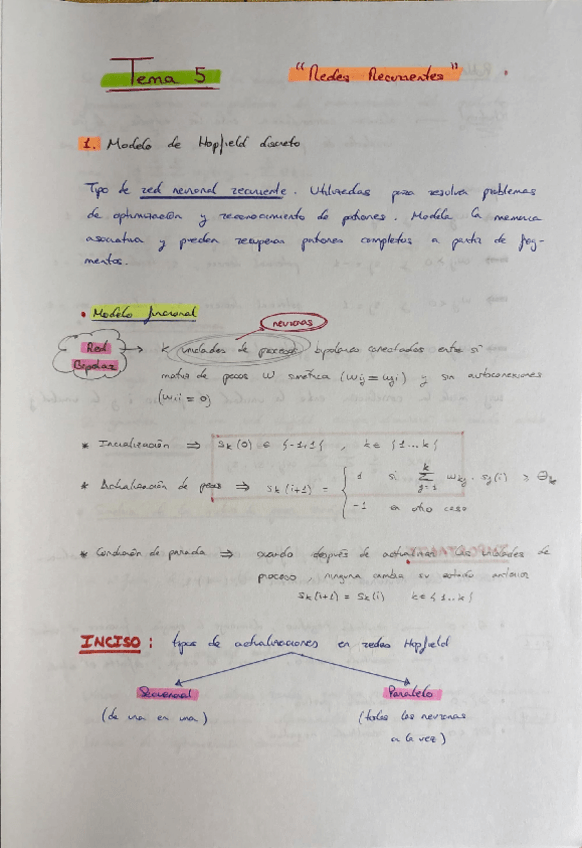 Tema 5 "Redes Recurrentes"
1. Modelo de Hopfield discreto
Tipo de red neuronal recurrente. Utilizadas para resolver problemas
de optimización y reconocimiento de patrones. Modela la memoria
asociativa y pueden recuperar patrones completos a partir de frag-
mentos.
• Modelo funcional
neuronas
Red Bipolar → k unidades de proceso bipolares conectadas entre si
matriz de pesos W simétrica (wij = wji) y sin autoconexiones
(wii = 0)
* Inicialización ⇒ Sk(0) ∈ {-1,1}, k ∈ {1...k}
* Actualización de pesos ⇒ Sk(i+1) = { 1 si Σ_{j=1}^{k} wkj · sj(i) ≥ θk
-1 en otro caso
* Condición de parada ⇒ cuando después de actualizar las unidades de
proceso, ninguna cambia su estado anterior
Sk(i+1) = Sk(i) k ∈ {1..k}
INCISO: tipos de actualizaciones en redes Hopfield
Secuencial Paralelo
(de una en una) (todas las neuronas
a la vez)